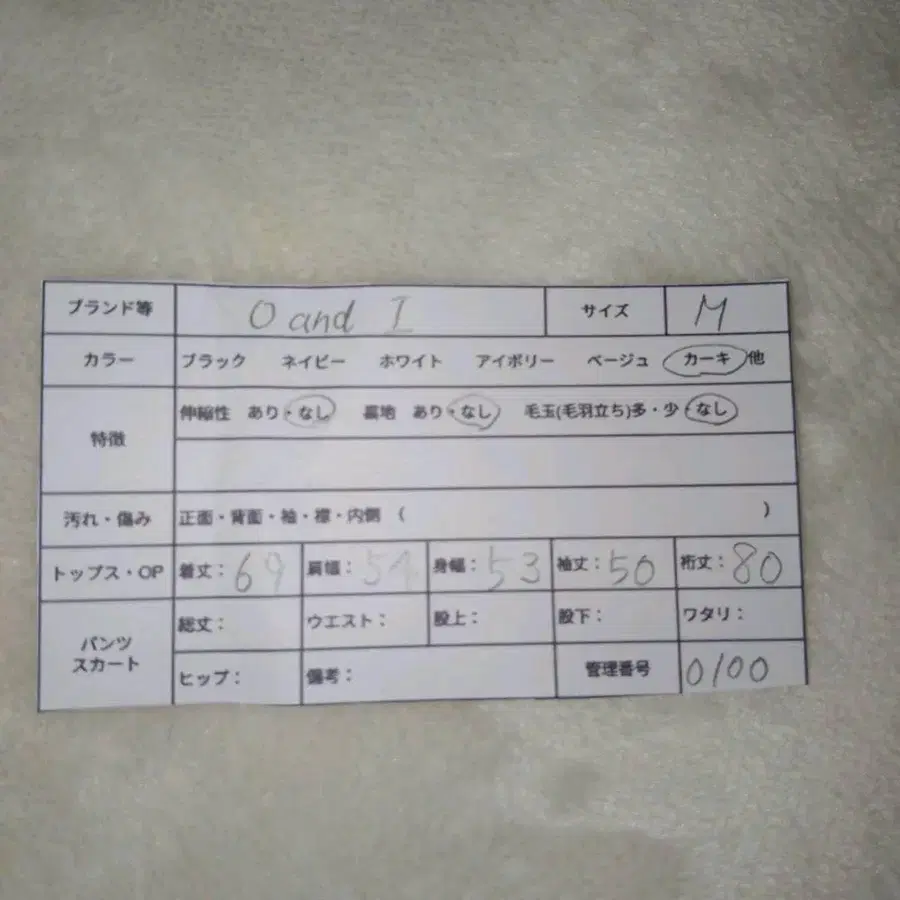 ブランド等 O and I サイズ M
カラー ブラック ネイビー ホワイト アイボリー ベージュ カーキ 他
特徴 伸縮性 あり・なし 裏地 あり・なし 毛玉(毛羽立ち)多・少・なし
汚れ・傷み 正面・背面・袖・襟・内側 ( )
トップス・OP 着丈: 69 肩幅: 身幅: 53 袖丈: 50 裄丈: 80
パンツ スカート 総丈: ウエスト: 股上: 股下: ワタリ:
ヒップ: 備考: 管理番号 0100